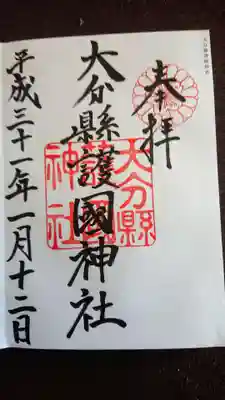 奉拝
大分縣護國神社
大分縣護國神社
平成三十一年一月十二日